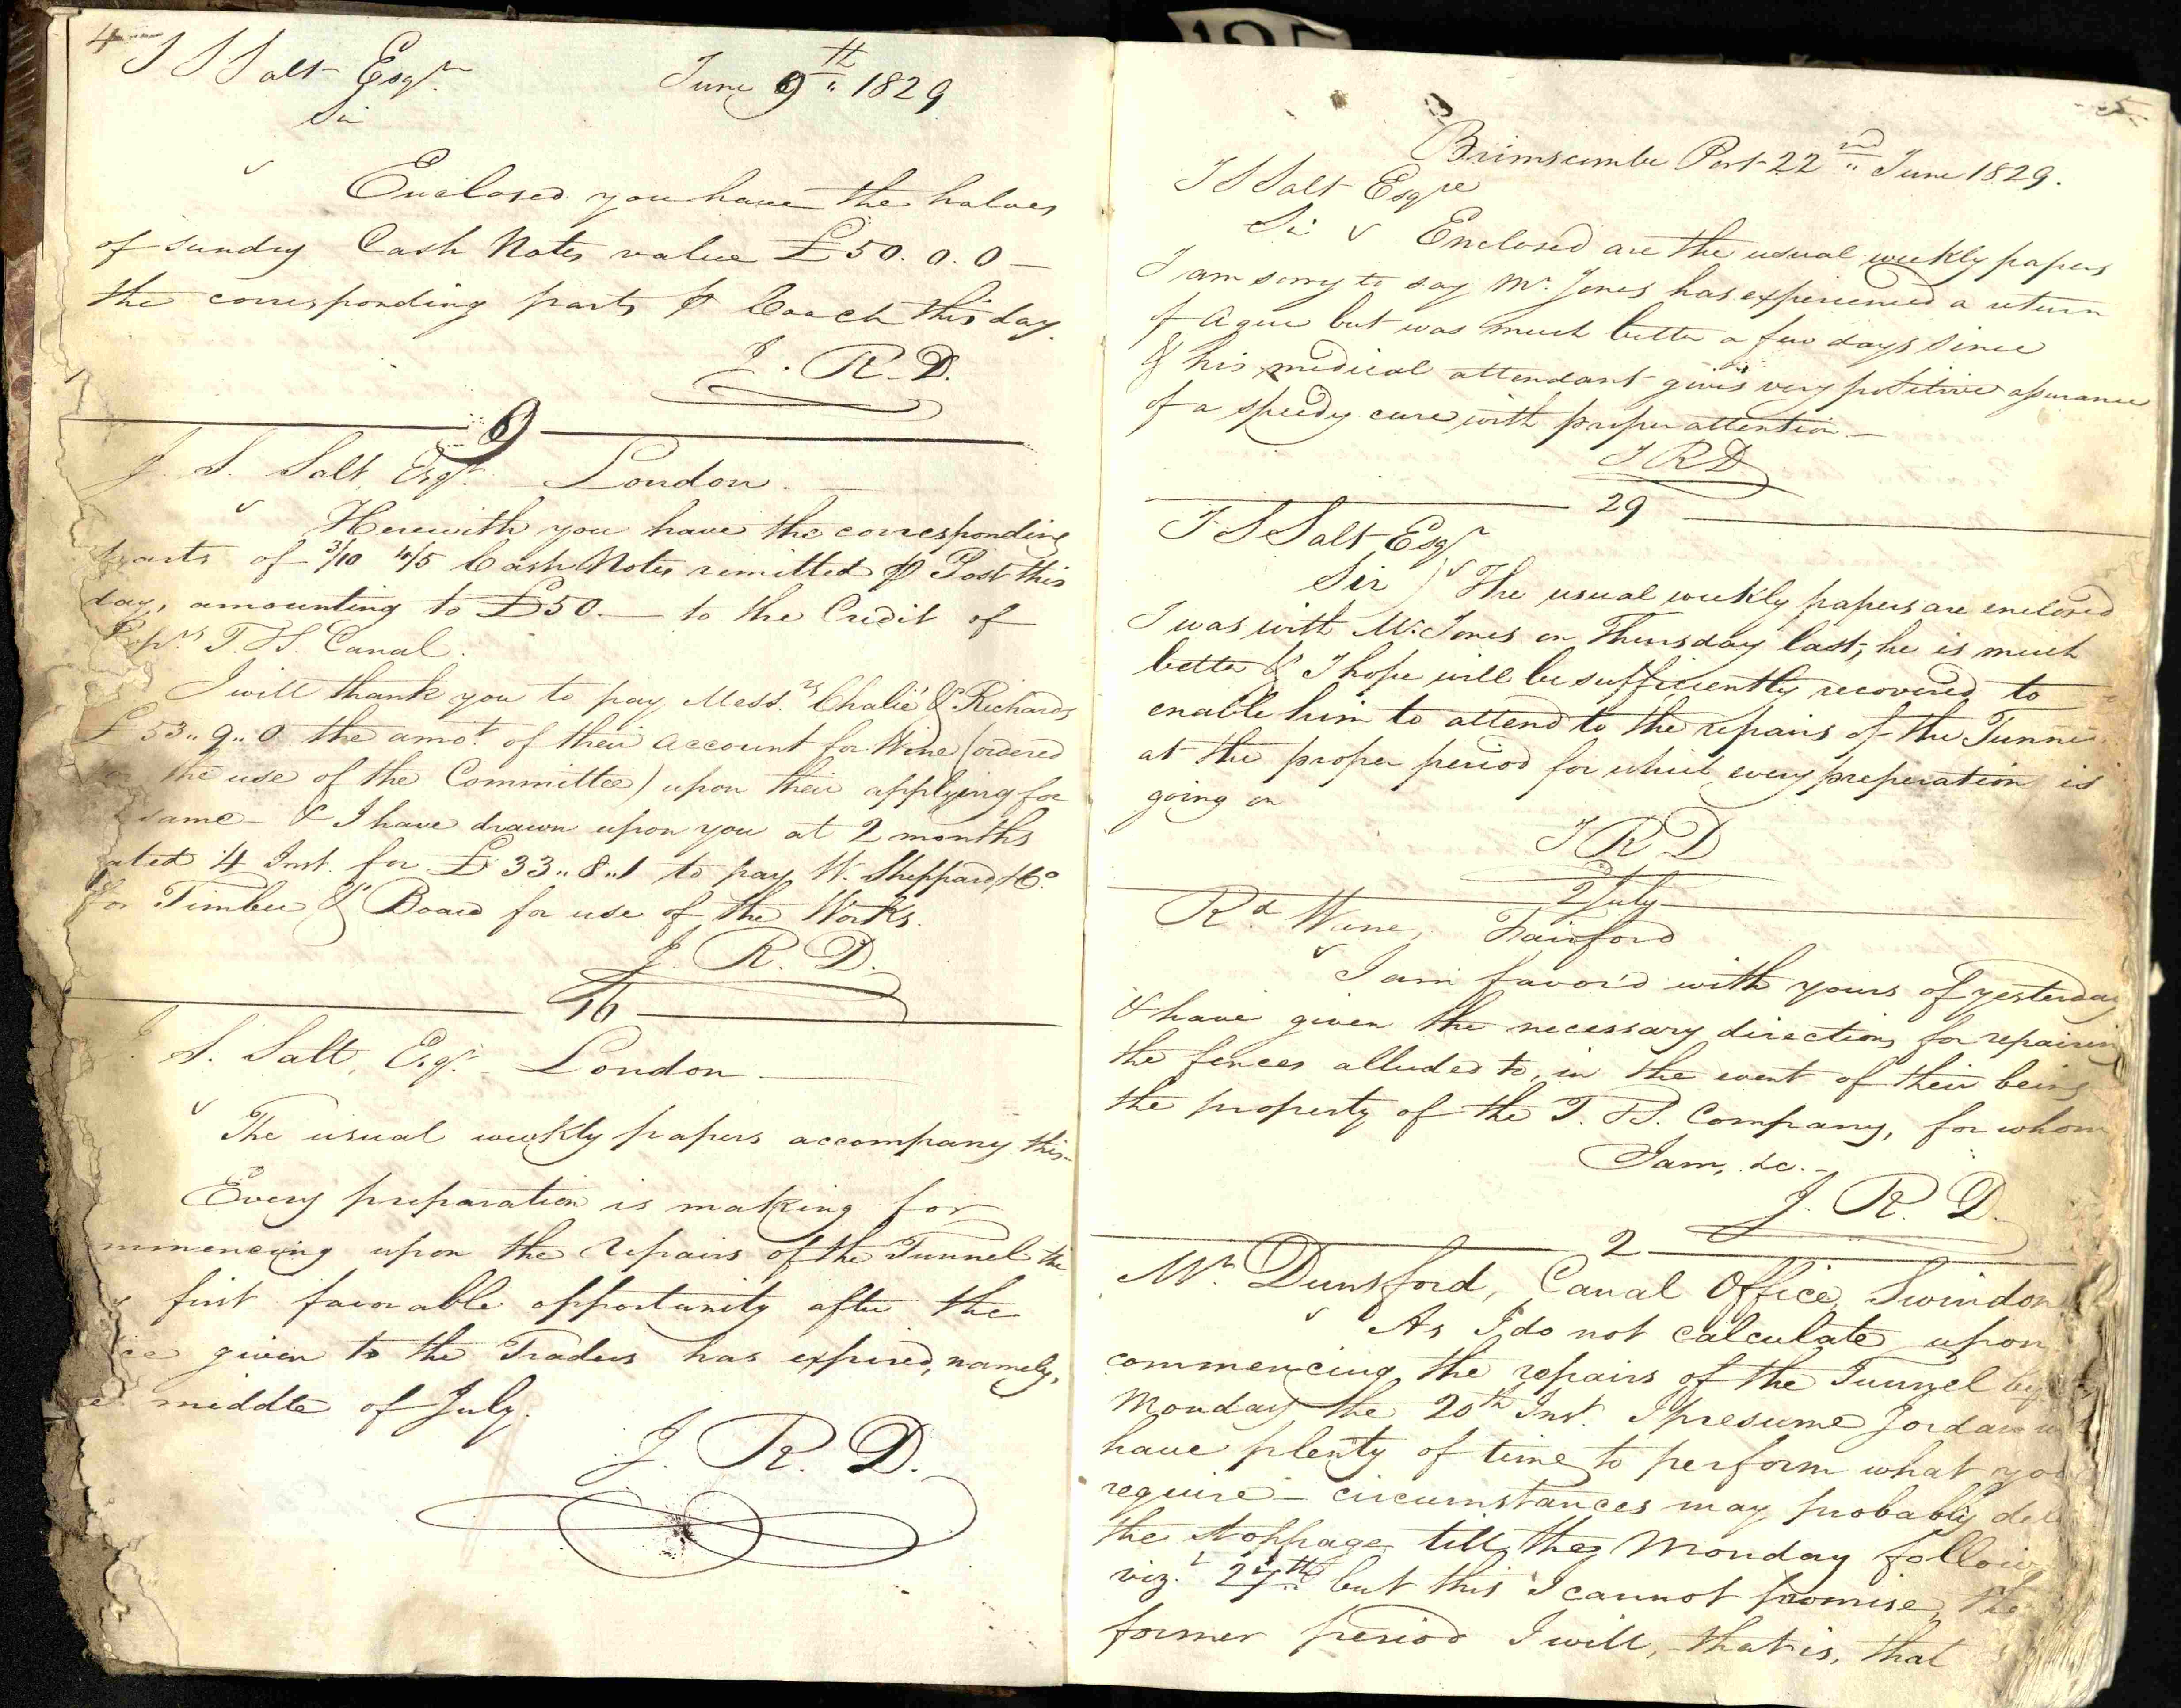 4
J S Salt Esqr. June 9th 1829
Sir
Enclosed you have the halves
of sundry Cash Notes value £50.0.0 —
the corresponding parts p Coach this day.
J. R. D.
9
J. S. Salt, Esqr. London. —
Herewith you have the corresponding
parts of 3/10 4/5 Cash Notes remitted p Post this
day, amounting to £50.— to the Credit of
T. & S. Canal.
I will thank you to pay Messrs Chalié & Richards
£53..9..0 the amot. of their account for Wine (ordered
the use of the Committee) upon their applying for
same — & I have drawn upon you at 2 months
ated 4 Inst. for £33..8..1 to pay W. Sheppard & Co.
for Timber & Board for use of the Works.
J. R. D.
16
J. S. Salt, Esqr. London —
The usual weekly papers accompany this —
Every preparation is making for
mmencing upon the repairs of the Tunnel the
first favorable opportunity after the
ce given to the Traders has expired, namely,
e middle of July.
J. R. D.
5
Brimscombe Port 22nd June 1829.
J S Salt Esqre
Sir Enclosed are the usual weekly papers
I am sorry to say Mr. Jones has experienced a return
of Ague but was much better a few days since
& his medical attendant gives very positive assurance
of a speedy cure with proper attention —
J R D
29
J S Salt Esqr
Sir The usual weekly papers are enclosed
I was with Mr. Jones on Thursday last; he is much
better & I hope will be sufficiently recovered to
enable him to attend to the repairs of the Tunne
at the proper period for which every preperation is
going on
J R D
2 July
Rd. Wane, Fairford
I am favor'd with yours of yesterday
& have given the necessary directions for repairing
the fences alluded to, in the event of their being
the property of the T. & S. Company, for whom
I am, &c. —
J. R. D.
2
Mr. Dunsford, Canal Office, Swindon
As I do not calculate upon
commencing the repairs of the Tunnel by
Monday the 20th Inst. I presume Jordan w
have plenty of time to perform what you
require — circumstances may probably del
the stoppage till the Monday follow
viz. 27th but this I cannot promise, the
former period I will, that is, that